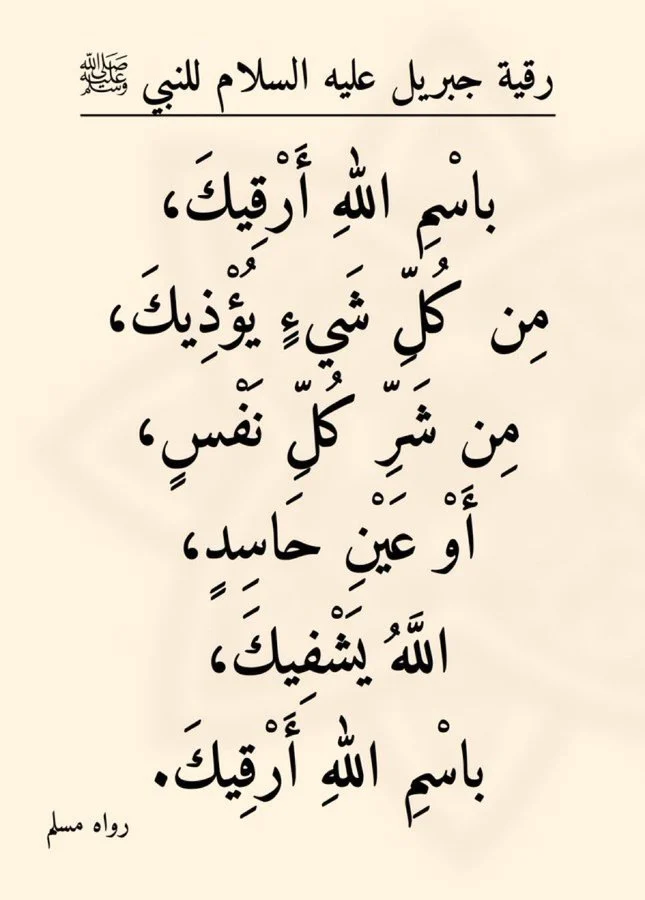 رقية جبريل عليه السلام للنبي ﷺ
باسْمِ اللهِ أَرْقِيكَ،
مِن كُلِّ شَيءٍ يُؤْذِيكَ،
مِن شَرِّ كُلِّ نَفْسٍ،
أَوْ عَيْنِ حَاسِدٍ،
اللَّهُ يَشْفِيكَ،
باسْمِ اللهِ أَرْقِيكَ.
رواه مسلم